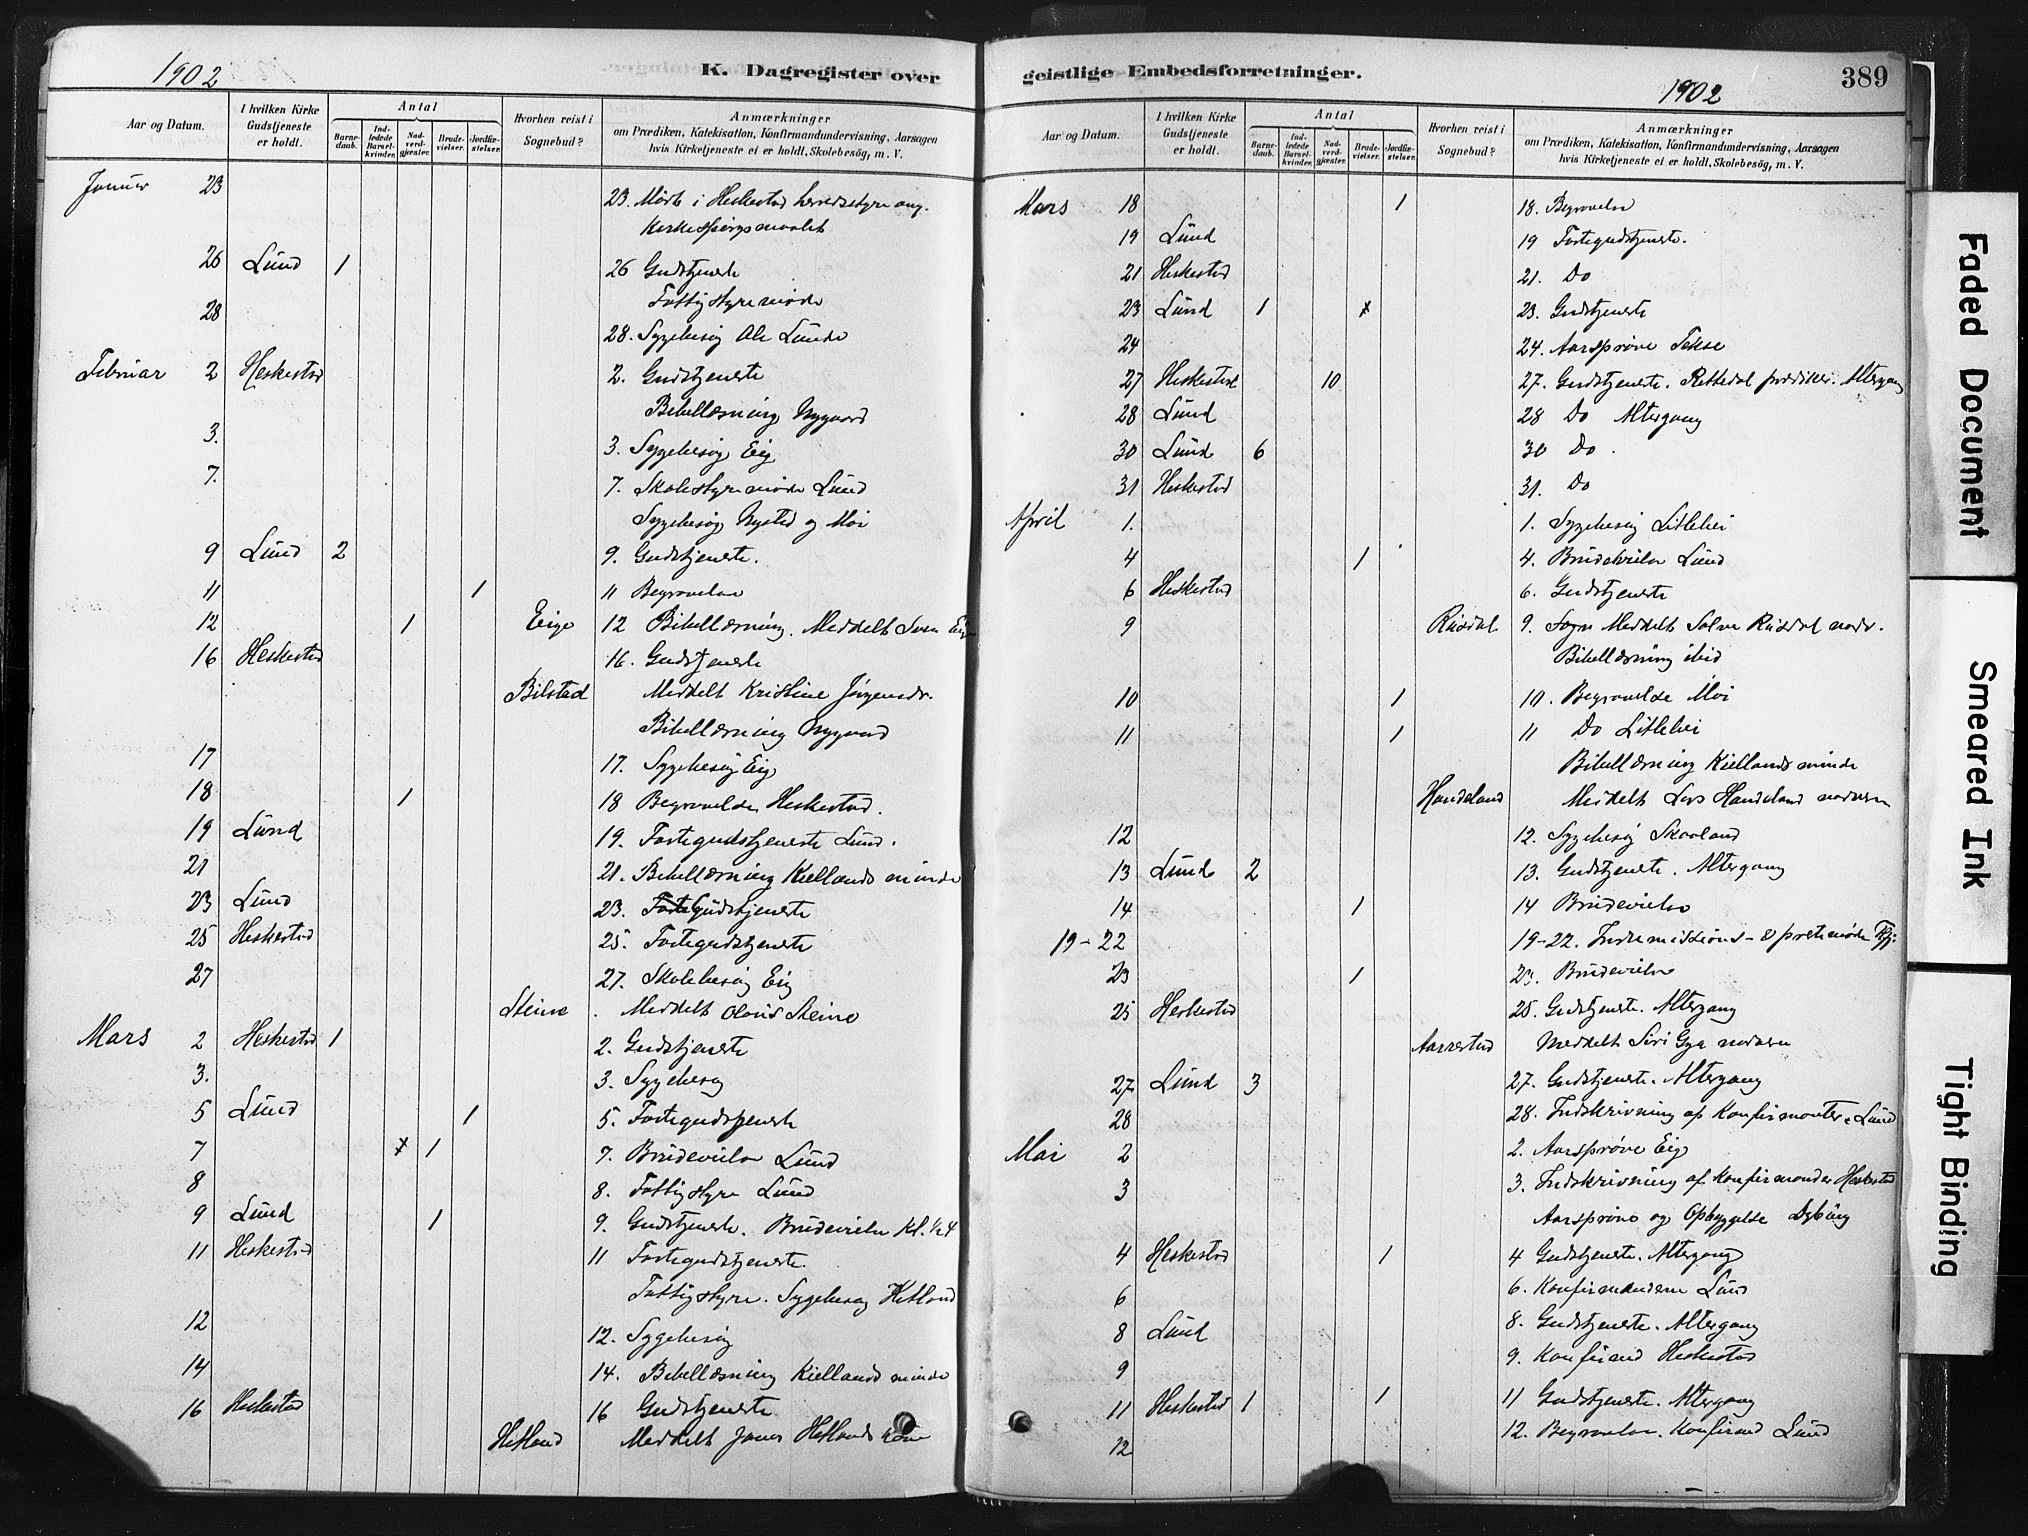 1902
K. Dagregister over
Aar og Datum.
I hvilken Kirke Gudstjeneste er holdt.
Antal
Barne-daab.
Ind-ledede Barsel-kvinder.
Nad-verd-gjæster.
Brude-vielser.
Jordfæ-stelser.
Hvorhen reist i Sognebud?
Anmærkninger
om Prædiken, Katekisation, Konfirmandundervisning, Aarsagen
hvis Kirketjeneste ei er holdt, Skolebesög, m. V.
Januar 23 23. Möde i Heskestad herredsstyre ang.
Kirkespörgsmaalet
26 Lund 1 26 Gudstjeneste
Fattigstyremöde
28 28. Sygebesög Ole Lunde
Februar 2 Heskestad 2. Gudstjeneste
Bibellæsning Nygaard
3. 3. Sygebesög Eig
7. 7. Skolestyremöde Lund
Sygebesög Nysted og Moi
9 Lund 2 9. Gudstjeneste.
11 1 11 Begravelse
12 1 Eige 12 Bibellæsning. Meddelt Sven Eige
16 Heskestad 16. Gudstjeneste
Bilstad Meddelt Kristine Jörgensdr.
Bibellæsning Nygaard
17 17. Sygebesög Eig
18 1 18 Begravelse Heskestad.
19 Lund 19. Fastegudstjeneste Lund.
21 21. Bibellæsning Kiellands minde
23 Lund 23. Gudstjeneste
25 Heskestad 25. Fastegudstjeneste
27 27. Skolebesög Eig
Steine . Meddelt Olaus Steine
Mars 2 Heskestad 1 2. Gudstjeneste
3. 3. Sygebesög
5 Lund 1 5. Fastegudstjeneste
7 1 7. Brudevielse Lund
8 8. Fattigstyre Lund
9 Lund 1 9. Gudstjeneste. Brudevielse Kl. ½4
11 Heskestad 11 Fastegudstjeneste.
Fattigstyre. Sygebesög Hetland
12 12. Sygebesög
14 14. Bibellæsning Kiellands minde
16 Heskestad 16 Gudstjeneste
Hetland Meddelt Jonas Hetlands kone
geistlige Embedsforretninger.
1902
389
Aar og Datum.
I hvilken Kirke Gudstjeneste er holdt.
Antal
Barne-daab.
Ind-ledede Barsel-kvinder.
Nad-verd-gjæster.
Brude-vielser.
Jordfæ-stelser.
Hvorhen reist i Sognebud?
Anmærkninger
om Prædiken, Katekisation, Konfirmandundervisning, Aarsagen
hvis Kirketjeneste ei er holdt, Skolebesög, m. V.
Mars 18 1 18. Begravelse
19 Lund 19 Fastegudstjeneste.
21 Heskestad 21. Do
23 Lund 1 23. Gudstjeneste
24 24. Aarspröve Tekse
27 Heskestad 10 27. Gudstjeneste. Rettedal prædiker. Altergang
28 Lund 28 Do Altergang
30 Lund 6 30 Do.
31 Heskestad 31. Do
April 1. 1. Sygebesög Litlehei
4 1 4. Brudevielse Lund
6 Heskestad 6. Gudstjeneste
9 Rusdal 9. Sogn Meddelt Salve Rusdal nadv.
Bibellæsning ibid
10 1 10. Begravelse Moi
11 1 11 Do Litlehei
Bibellæsning Kiellands minde
Handeland Meddelt Lars Handeland nadveren
12 12. Sygebesög Skaaland
13 Lund 2 13. Gudstjeneste. Altergang
14 1 14 Brudevielse
19-22 19-22. Indremissions- & prestemöde
23 1 23. Brudevielse
25 Heskestad 25. Gudstjeneste. Altergang
Aarrestad Meddelt Siri Gya nadveren
27 Lund 3 27. Gudstjeneste. Altergang
28 28. Indskrivning af Konfirmanter i Lund
Mai 2 2. Aarspröve Eig
3 3. Indskrivning af Konfirmander Heskestad
Aarspröve og Opbyggelse Dybing
4 Heskestad 1 4 Gudstjeneste. Altergang
6 6. Konfirmanderne Lund
8 Lund 8. Gudstjeneste. Altergang
9 9. Konfirmand Heskestad
11 Heskestad 1 1 11 Gudstjeneste. Altergang
12 12. Begravelse. Konfirmand Lund
Faded Document
Smeared Ink
Tight Binding